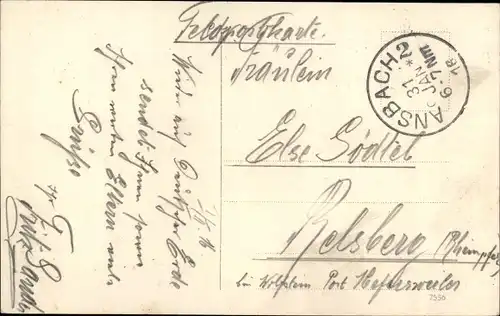 Feldpostkarte.
Fräulein
Else Gödtel
Relsberg (Rheinpfalz)
bei Wolfstein Post Hefersweiler
7556
ANSBACH 2
31 JAN
6-7 NM
18
Wieder auf deutscher Erde
sendet Ihnen sowie
Ihren werten Eltern viele
Grüsse
Fritz